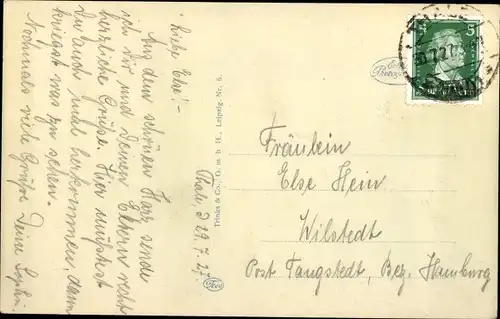 Liebe Else!-
Aus dem schönen Harz sende
ich dir und deinen Eltern recht
herzliche Grüße. Hier müsstest
du auch mal herkommen, dann
kriegst was zu sehen.
Nochmals viele Grüße Deine Sophie.
Thale, d 29.7.27.
Trinks & Co., G. m. b. H., Leipzig. Nr. 6.
Trco
5
Fräulein
Else Hein
Wilstedt
Post Tangstedt, Bez. Hamburg